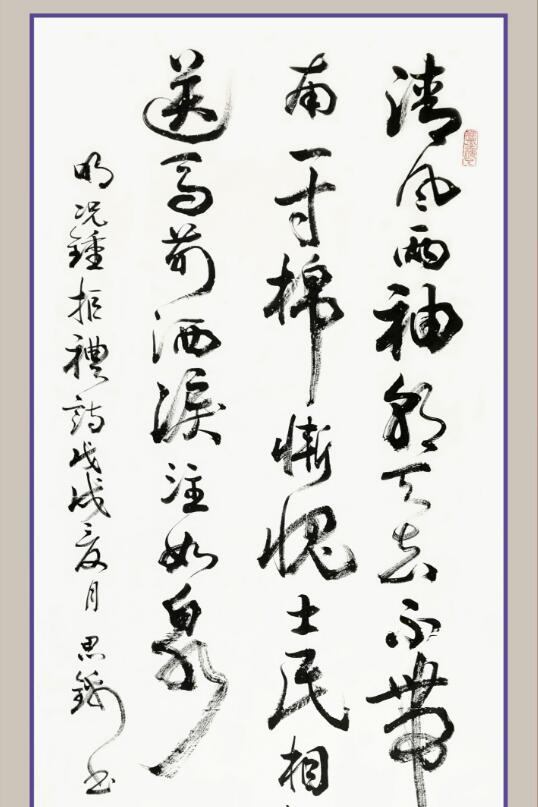 清風兩袖朝天去不帶
南一寸棉慚愧士民相
送馬前洒淚注如泉
明況鍾拒禮詩戊戌夏月思 書